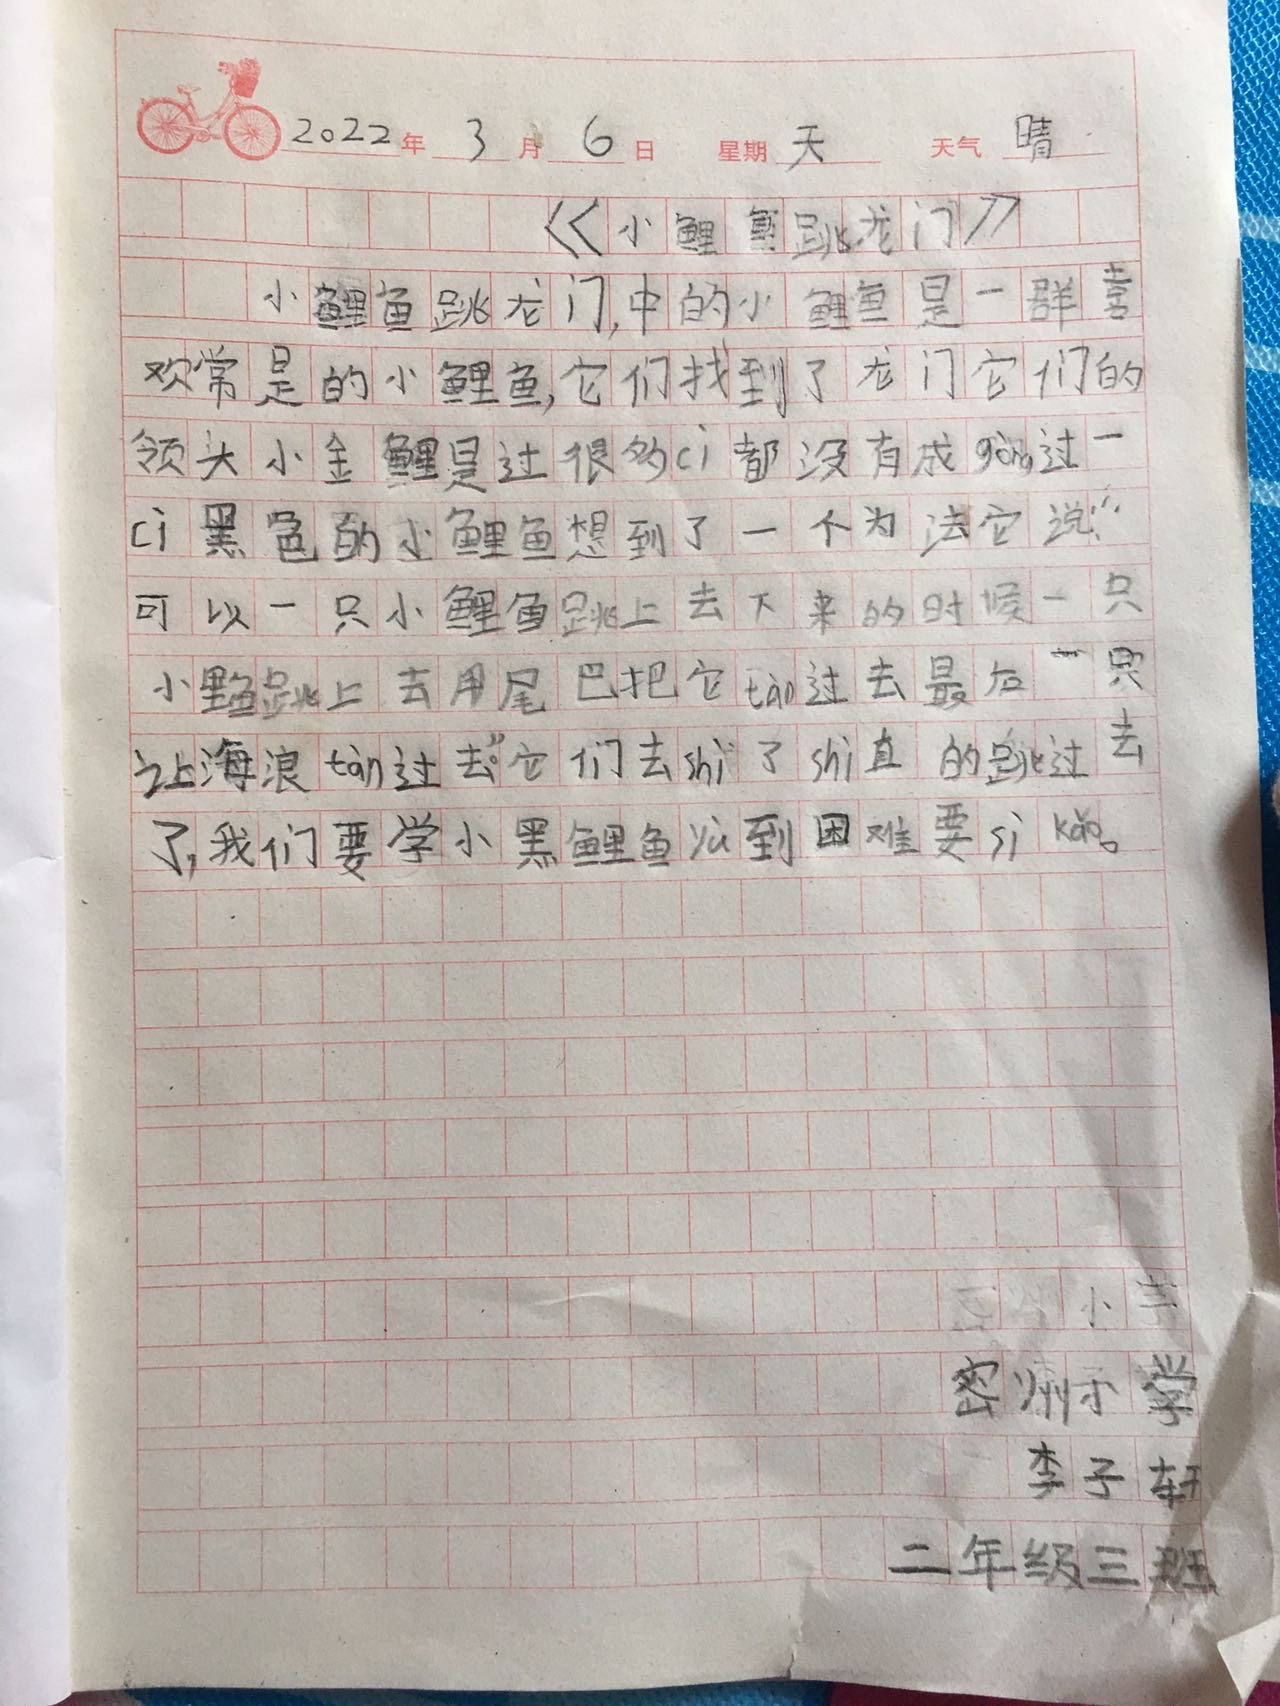 2022年 3月 6日 星期 天 天气 晴
《小鲤鱼跳龙门》
小鲤鱼跳龙门,中的小鲤鱼是一群喜
欢常是的小鲤鱼,它们找到了龙门它们的
领头小金鲤是过很多ci都没有成gōng过一
ci黑色的小鲤鱼想到了一个为法它说:“
可以一只小鲤鱼跳上去下来的时候一只
小鲤鱼跳上去用尾巴把它tán过去最后一只
让海浪tán过去。”它们去shì了shì直的跳过去
了,我们要学小黑鲤鱼yù到困难要sī kǎo。
小学
密州小学
李子轩
二年级三班